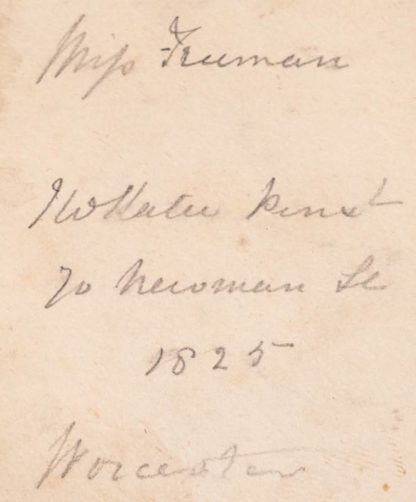 Miss Freeman
W Slater pinxt
70 Newman St
1825
Worcester